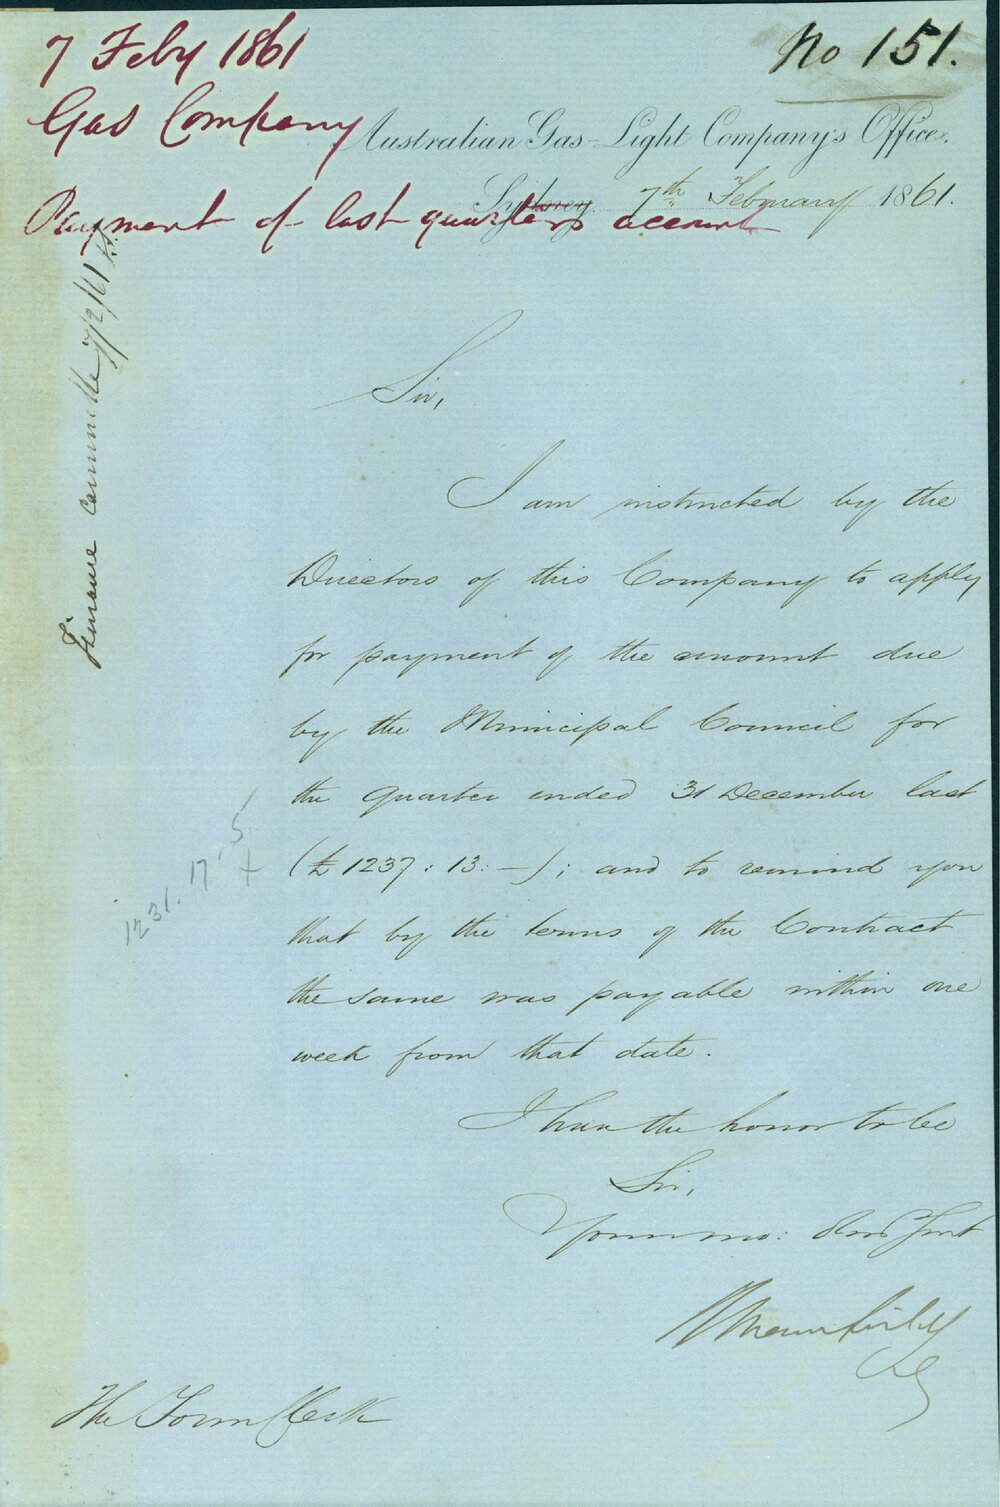 7 Feby 1861
No 151.
Gas Company
Australian Gas-Light Company's Office.
Sydney 7th February 1861.
Payment of last quarters account
Finance Committee 7/2/61
Sir,
I am instructed by the
Directors of this Company to apply
for payment of the amount due
by the Municipal Council for
the quarter ended 31 December last
(£1237:13:—); and to remind you
1231.17.5
that by the terms of the Contract
the same was payable within one
week from that date.
I have the honor to be
Sir,
Your mo: Obed Servt
The Town Clerk